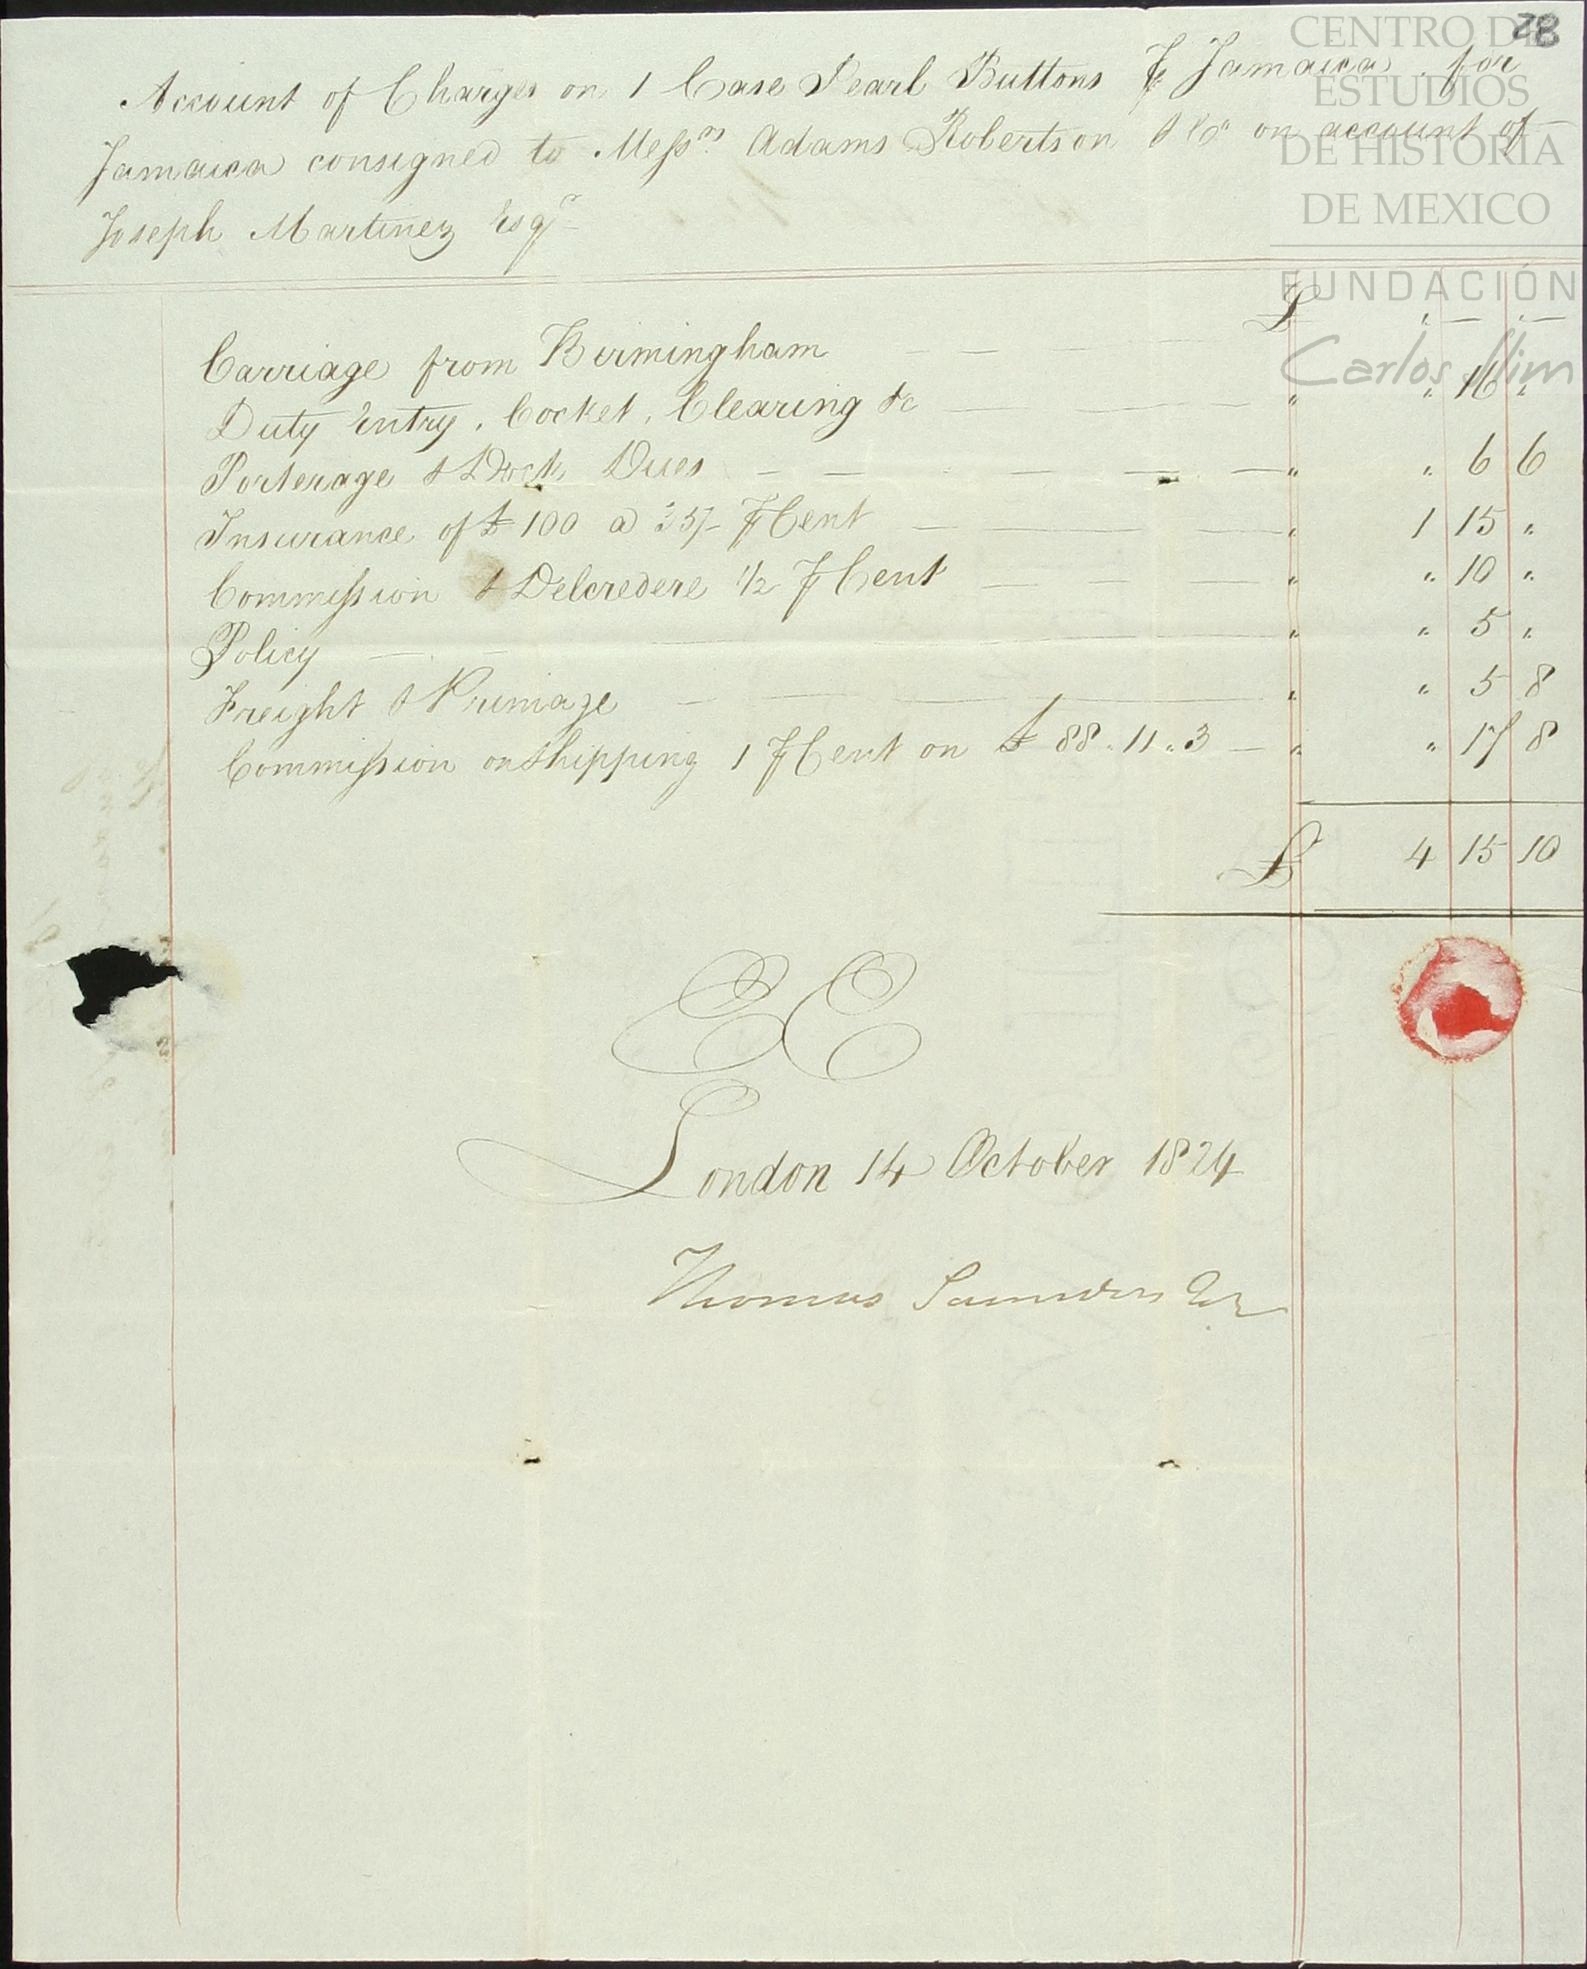 78
CENTRO DE
ESTUDIOS
DE HISTORIA
DE MEXICO
FUNDACIÓN
Carlos Slim
Account of Charges on 1 Case Pearl Buttons ⅌ Jamaica, for
Jamaica consigned to Messrs Adams Robertson & Co on account of
Joseph Martinez Esqr
Carriage from Birmingham — — £ " — —
Duty Entry, Cocket, Clearing &c — " " 16 "
Porterage & Dock Dues — — " " 6 6
Insurance of £100 a 35/- ⅌ Cent — " 1 15 "
Commission & Delcredere 1/2 ⅌ Cent — " " 10 "
Policy — — " " 5 "
Freight & Primage — " " 5 8
Commission on Shipping 1 ⅌ Cent on £ 88 " 11 " 3 — " " 17 8
£ 4 15 10
EE
London 14 October 1824
Thomas Saunders